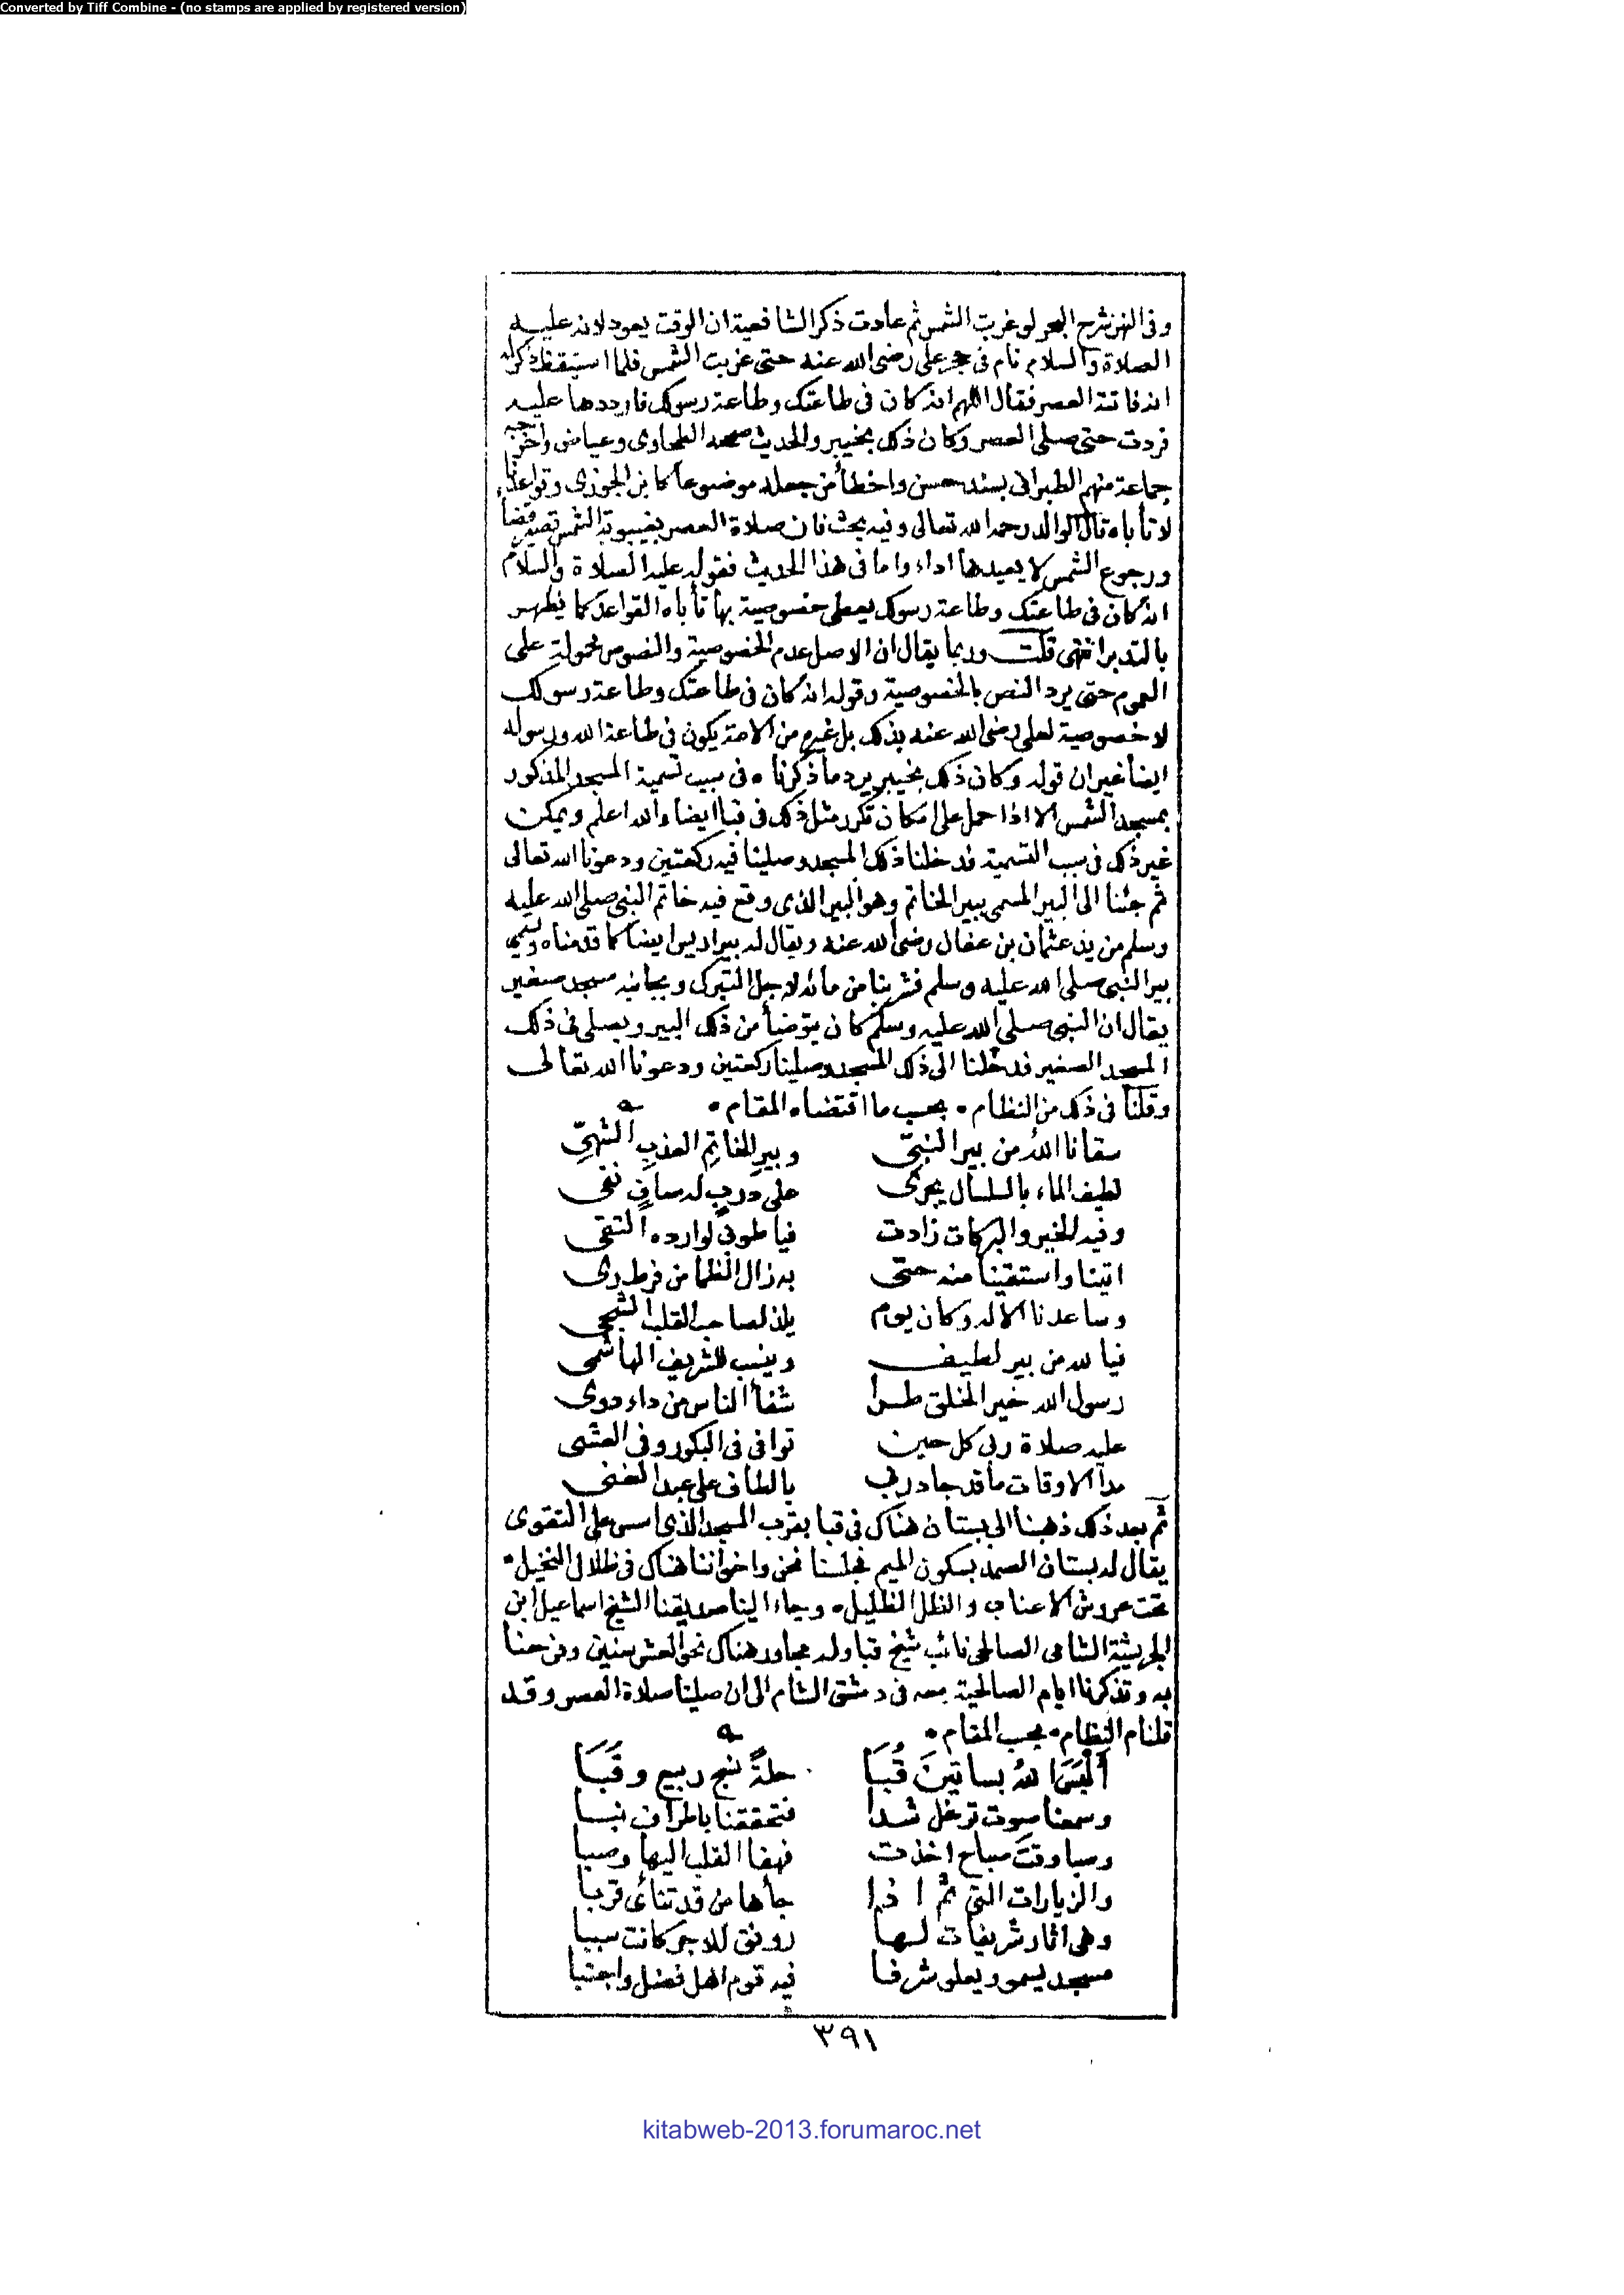 Converted by Tiff Combine - (no stamps are applied by registered version)
وفى النهر شرح البحر لو غربت الشمس ثم عادت ذكر الشافعية ان الوقت يعود لانه عليه
الصلاة والسلام نام فى حجر على رضى الله عنه حتى غربت الشمس فلما استيقظ ذكر له
انه فاتته العصر فقال اللهم انه كان فى طاعتك وطاعة رسولك فارددها عليه
فردت حتى صلى العصر وكان ذلك بخيبر والحديث صححه الطحاوى وعياض واخرجه
جماعة منهم الطبرانى بسند حسن واخطأ من جعله موضوعا كابن الجوزى وقواعدنا
لا تأباه قال الوالد رحمه الله تعالى وفيه بحث فان صلاة العصر بغيبوبة الشمس تصير قضأ
ورجوع الشمس لا يعيدها اداء واما فى هذا الحديث فقوله عليه الصلاة والسلام
انه كان فى طاعتك وطاعة رسولك يعطى خصوصية بها تأباه القواعد كما يظهر
بالتدبر انتهى قلت وربما يقال ان الاصل عدم الخصوصية والنصوص محمولة على
العموم حتى يرد النص بالخصوصية وقوله انه كان فى طاعتك وطاعة رسولك
لا خصوصية لعلى رضى الله عنه بذلك بل غيره من الامة يكون فى طاعة الله ورسوله
ايضا غير ان قوله وكان ذلك بخيبر يرد ما ذكرناه فى سبب تسمية المسجد المذكور
بمسجد الشمس الا اذا حمل على امكان تكرر مثل ذلك فى قبا ايضا والله اعلم ويمكن
غير ذلك فى سبب التسمية فدخلنا ذلك المسجد وصلينا فيه ركعتين ودعونا الله تعالى
ثم جئنا الى البير المسمى ببير الخاتم وهو البير الذى وقع فيه خاتم النبى صلى الله عليه
وسلم من يد عثمان بن عفان رضى الله عنه ويقال له بير اريس ايضا كما قدمناه ويسمى
بير النبى صلى الله عليه وسلم فشربنا من مائه لاجل التبرك وبجانبه مسجد صغير
يقال ان النبى صلى الله عليه وسلم كان يتوضأ من ذلك البير ويصلى فى ذلك
المسجد الصغير فدخلنا الى ذلك المسجد وصلينا ركعتين ودعونا الله تعالى
وقلنا فى ذلك من النظام • بحسب ما اقتضاه المقام •
سقانا الله من بير النبىّ وبير الخاتم العذب الشهىّ
لطيف الماء بالسلسال يجرى على درب له صاف نقى
وفيه الخير والبركات زادت فيا طوبى لوارده التقى
اتينا واستقينا منه حتى به زال الظما من فرط رى
وساعدنا الاله وكان يوم يلذ لصاحب القلب الشجى
فيا لله من بير لطيف وينسب للشريف الهاشمى
رسول الله خير الخلق طرا شفأ الناس من داء دوى
عليه صلاة ربى كل حين توافى فى البكور وفى العشى
مدآ الاوقات ما قد جاد ربى بالطاف على عبد الغنى
ثم بعد ذلك ذهبنا الى بستان هناك فى قبا بقرب المسجد الذى اسس على التقوى
يقال له بستان الصمد بسكون الميم فجلسنا نحن واخواننا هناك فى ظلال النخيل •
تحت عروش الاعناب والظل الظليل • وجاء الينا صديقنا الشيخ اسماعيل ابن
الشامى الصالحى نائب شيخ قبا وله مجاور هناك نحو العشر سنين وفرحنا
به وتذكرنا ايام الصالحية معه فى دمشق الشام الى ان صلينا صلاة العصر وقد
قلنا من النظام • بحسب المقام •
اَلْبَسَ اللهُ بساتينَ قُبَا حلةً نسج ربيع وقَبَا
وسمعنا صوت شدا فتحققنا باطراف نبا
وصبا وقت صباح اخذت فهفا القلب اليها وصبا
والزيارات التى ثم اذا جأها من قد تنائى قربا
وهى اثار شريفات لها رونق للاجر كانت سببا
مسجد يسمو ويعلو شرفا فيه قوم اهل فضل واجتبا
٣٩١
kitabweb-2013.forumaroc.net